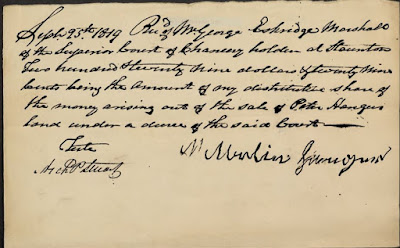 Sept. 25th 1819 Recd of Mr George Eskridge Marshall
of the Superior Court of Chancery holden at Staunton
Two hundred & twenty Nine dollars & twenty Nine
cents being the amount of my distributive share of
the money arising out of the sale of Peter Hangers
land under a decree of the said Court
Teste
Archd Stuart
Martin